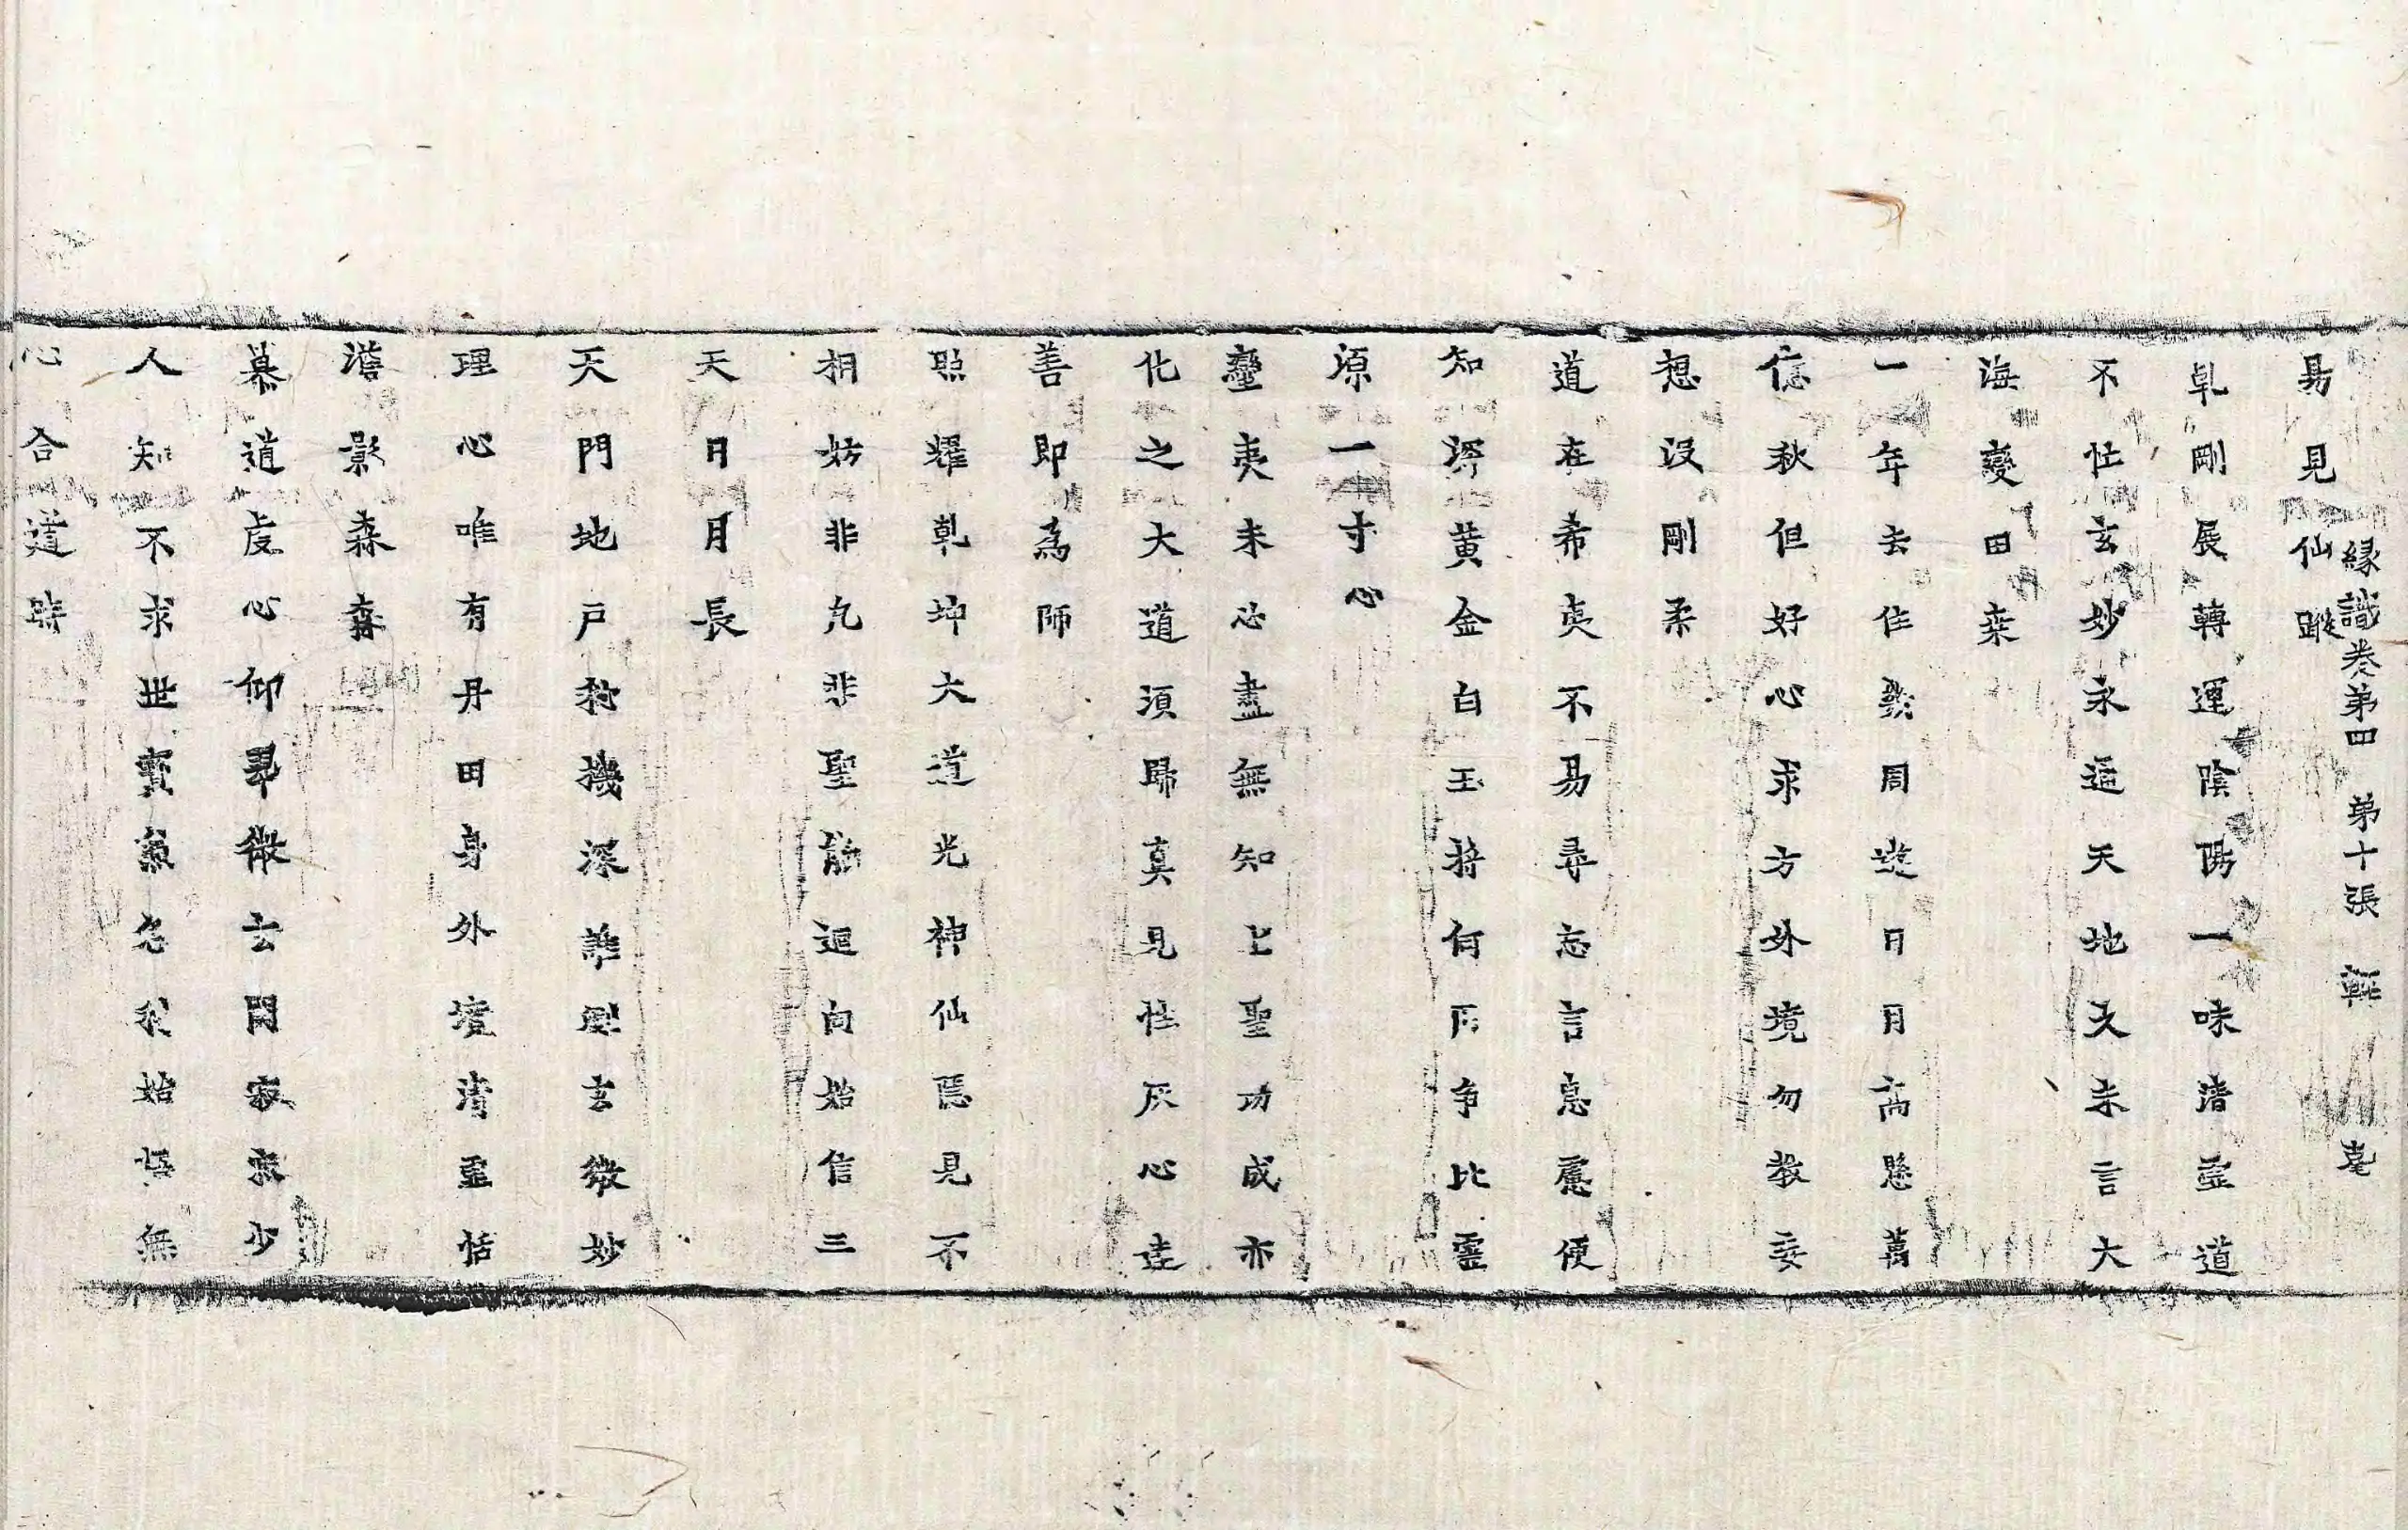 易見仙蹤
緣識卷第四 第十張 輕
乹剛展轉運陰陽一味清靈道
不怯玄妙永逼天地久未言大
海變田桒
一年去住數周遊日月高懸萬
億秋但好心求方外境勿教妄
想没剛柔
道在希夷不易尋忘言息慮使
知深黄金白玉將何用争比靈
源一寸心
蠻夷未必盡無知上聖功成亦
化之大道須歸真見性灰心達
善即為師
照耀乹坤大道光神仙隱見不
相妨非凡非聖能迴向始信三
天日月長
天門地戶秘機深誰測玄微妙
理心唯有丹田身外境清靈恬
澹影森森
慕道虔心仰翠微玄關寂寞少
人知不求世寳兼名利始悟無
心合道時